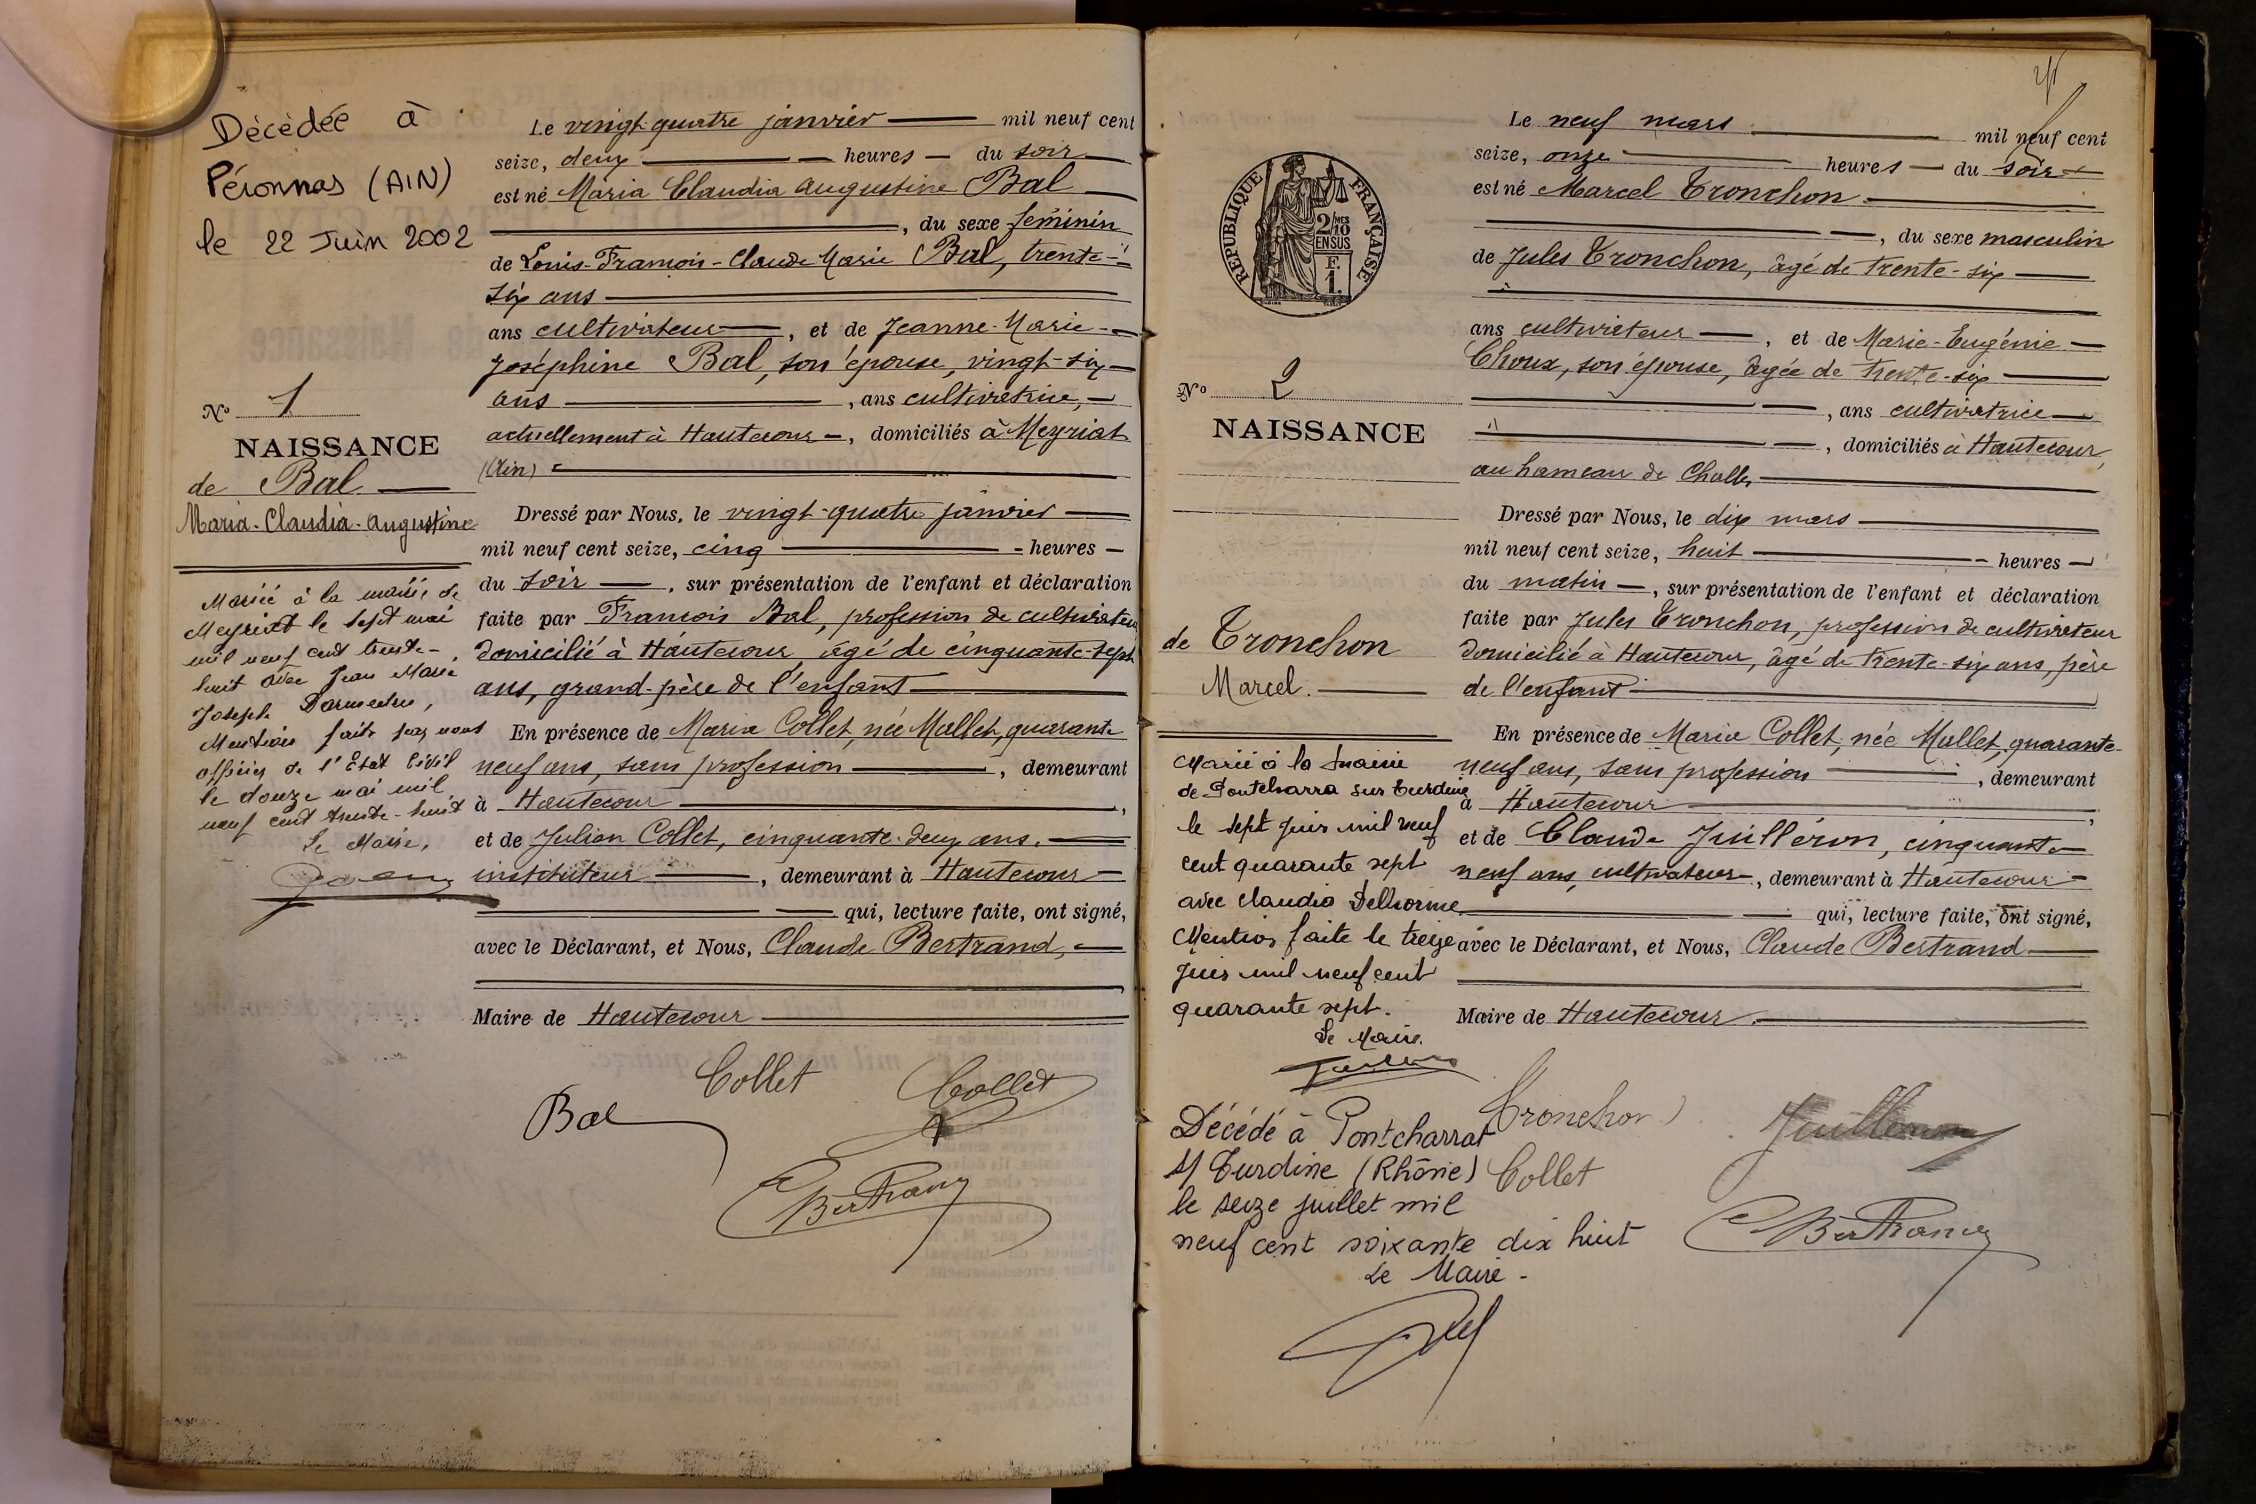 Décédée à
Péronnas (AIN)
le 22 Juin 2002
No 1
NAISSANCE
de Bal
Maria-Claudia-Augustine
Mariée à la mairie de
Meyriat le sept mai
mil neuf cent trente-
huit avec Jean Marie
Joseph
Mention faite par nous
officier de l'Etat Civil
le douze mai mil
neuf cent trente-huit
Le Maire,
Le vingt-quatre janvier mil neuf cent
seize, deux heures du soir
est né Maria Claudia Augustine Bal
, du sexe féminin
de Louis-François-Claude Marie Bal, trente-
six ans
ans cultivateur, et de Jeanne-Marie-
Joséphine Bal, son épouse, vingt-six
ans , ans cultivatrice,
actuellement à Hautecour, domiciliés à Meyriat
(Ain)
Dressé par Nous, le vingt-quatre janvier
mil neuf cent seize, cinq heures
du soir, sur présentation de l'enfant et déclaration
faite par François Bal, profession de cultivateur
domicilié à Hautecour, âgé de cinquante-sept
ans, grand-père de l'enfant
En présence de Maria Collet, née Mallet, quarante
neuf ans, sans profession, demeurant
à Hautecour,
et de Julien Collet, cinquante-deux ans,
instituteur, demeurant à Hautecour
qui, lecture faite, ont signé,
avec le Déclarant, et Nous, Claude Bertrand,
Maire de Hautecour
Collet Collet
Bal
Bertrand
REPUBLIQUE FRANÇAISE
2/10 MES
EN SUS
F.
1.
No 2
NAISSANCE
de Tronchon
Marcel.
Marié à la mairie
de Pontcharra sur Turdine
le sept juin mil neuf
cent quarante sept
avec Claudia Delhorme
Mention faite le treize
juin mil neuf cent
quarante sept.
Le Maire
Décédé à Pontcharrat
s/ Turdine (Rhône)
le seize juillet mil
neuf cent soixante dix huit
Le Maire -
Le neuf mars mil neuf cent
seize, onze heures du soir
est né Marcel Tronchon
, du sexe masculin
de Jules Tronchon, âgé de trente-six
ans cultivateur, et de Marie-Eugénie
Choux, son épouse, âgée de trente-six
, ans cultivatrice
, domiciliés à Hautecour,
au hameau de Challes
Dressé par Nous, le dix mars
mil neuf cent seize, huit heures
du matin, sur présentation de l'enfant et déclaration
faite par Jules Tronchon, profession de cultivateur
domicilié à Hautecour, âgé de trente-six ans, père
de l'enfant
En présence de Maria Collet, née Mallet, quarante-
neuf ans, sans profession, demeurant
à Hautecour,
et de Claude Juilléron, cinquante
neuf ans, cultivateur, demeurant à Hautecour
qui, lecture faite, ont signé,
avec le Déclarant, et Nous, Claude Bertrand
Maire de Hautecour
Tronchon Juilleron
Collet
Bertrand